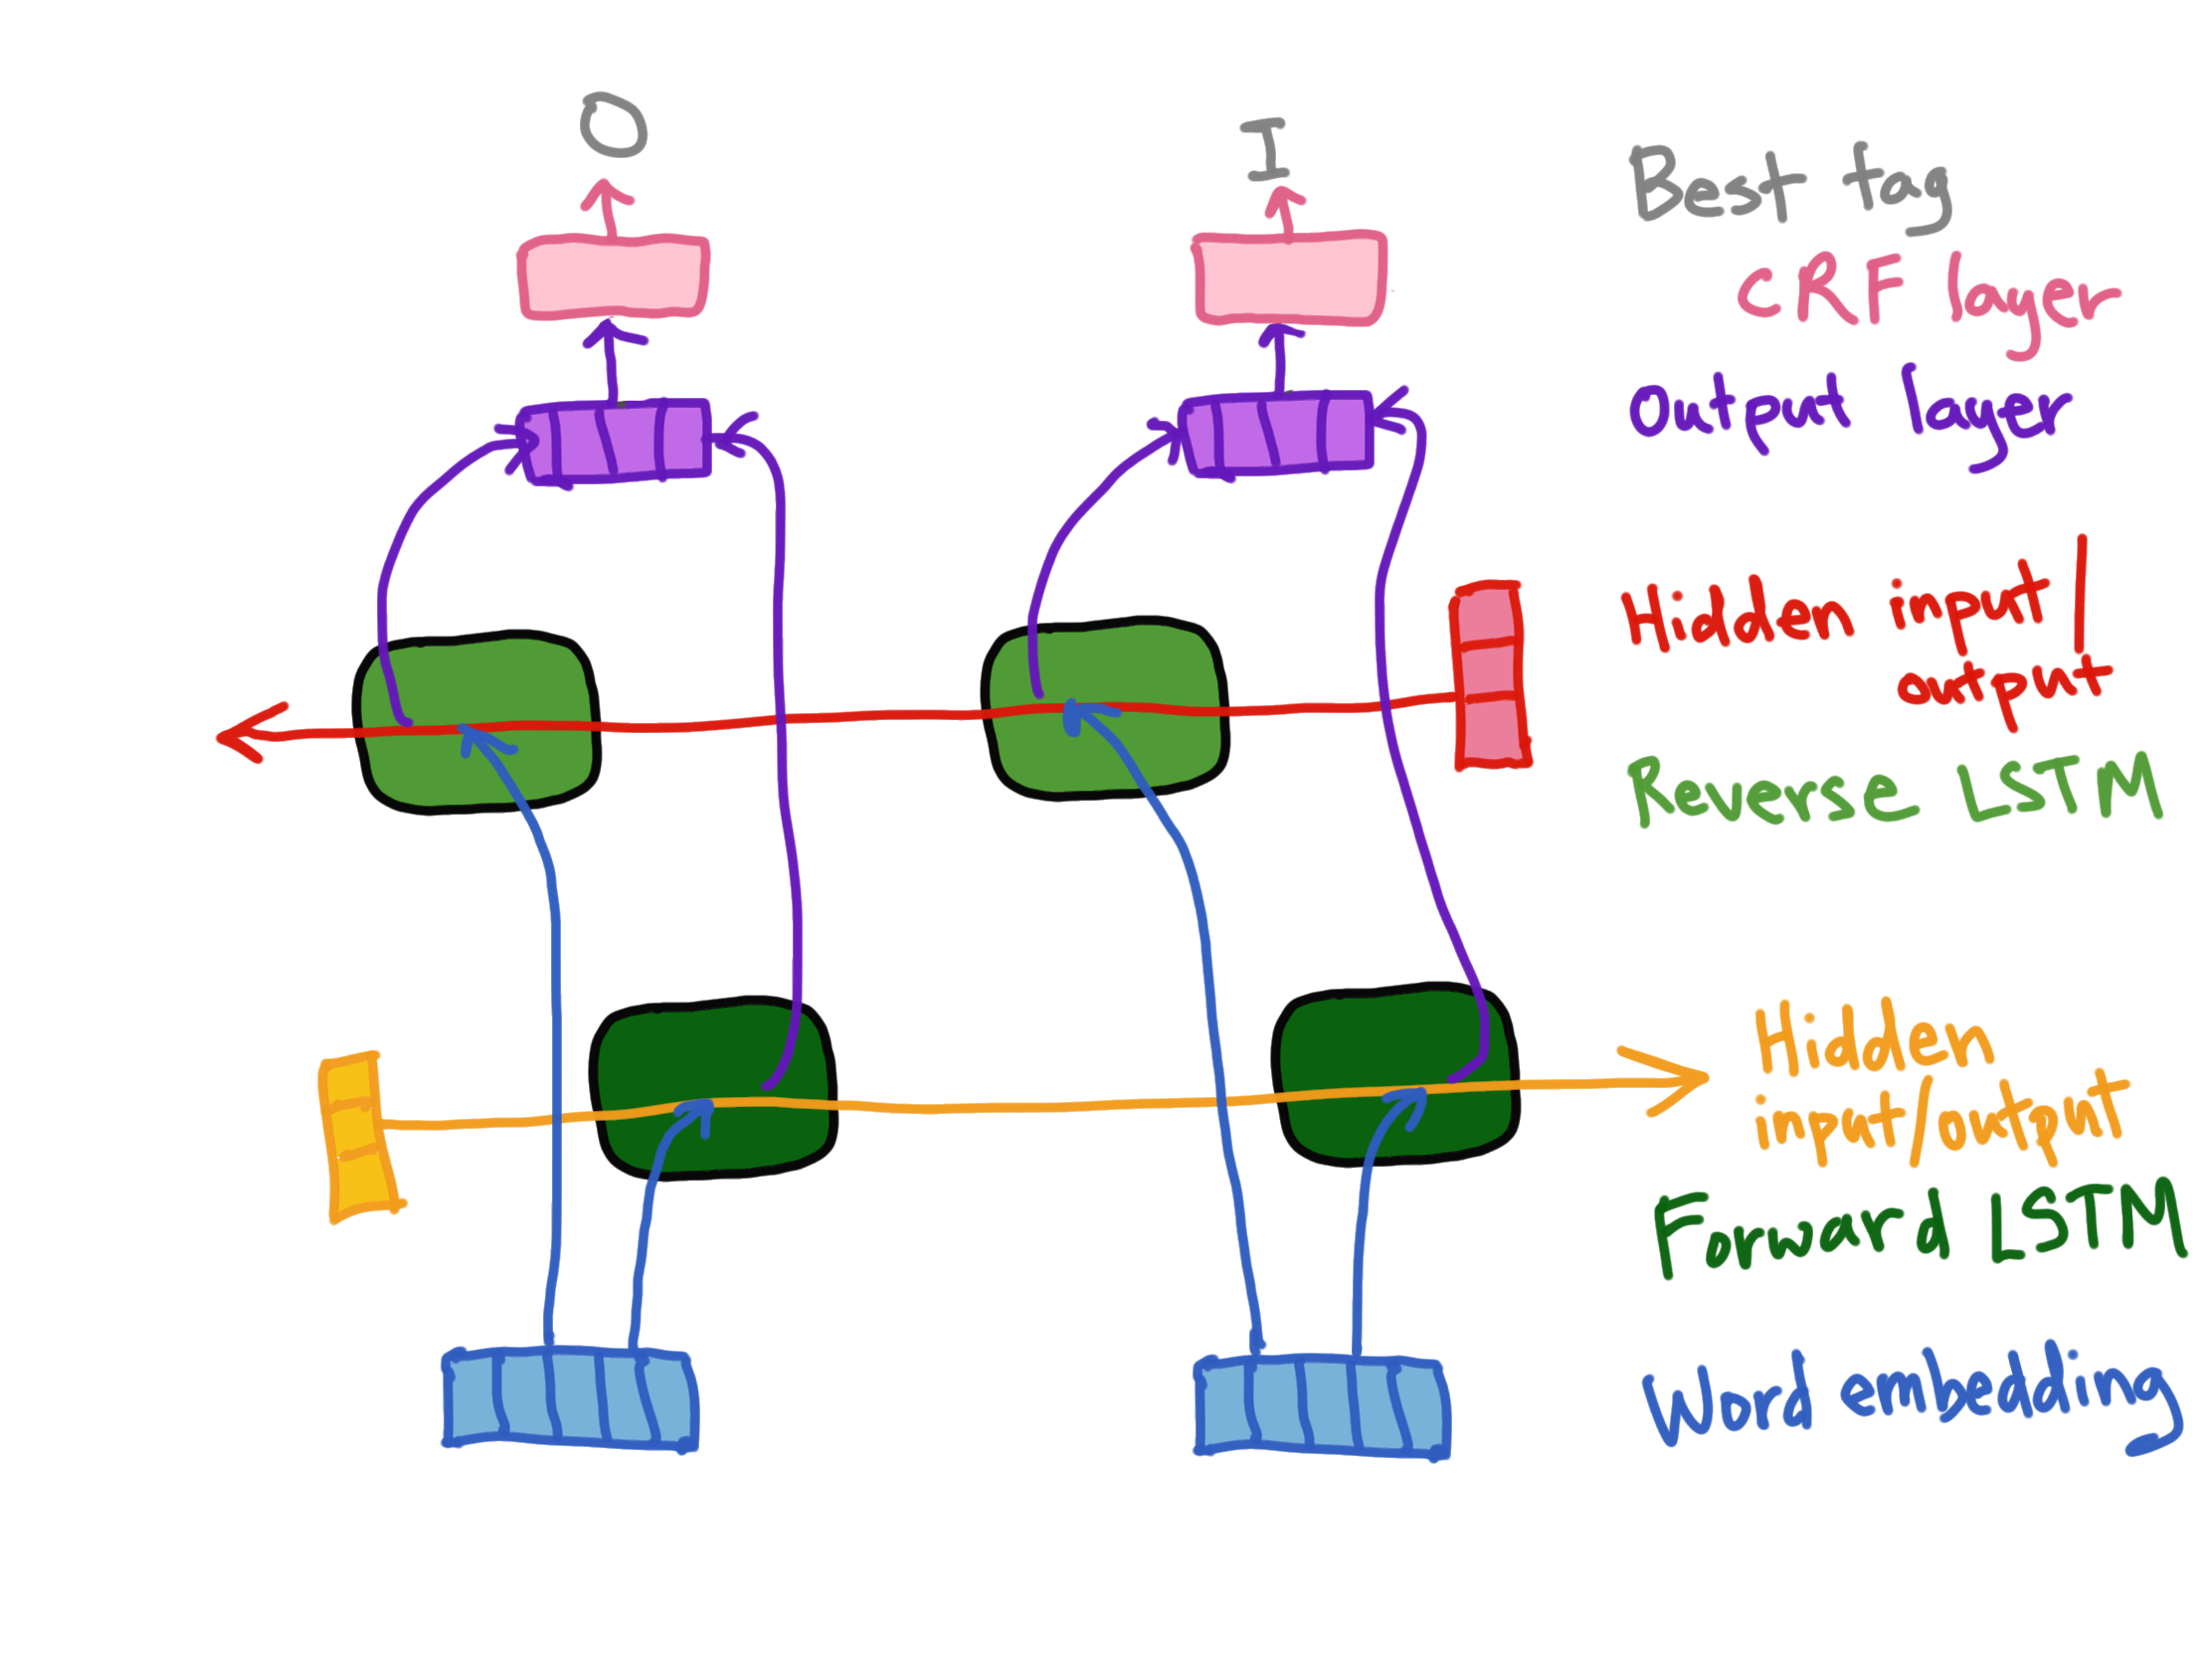 O
I
Best tag
CRF layer
Output layer
Hidden input/
output
Reverse LSTM
Hidden
input/output
Forward LSTM
Word embedding